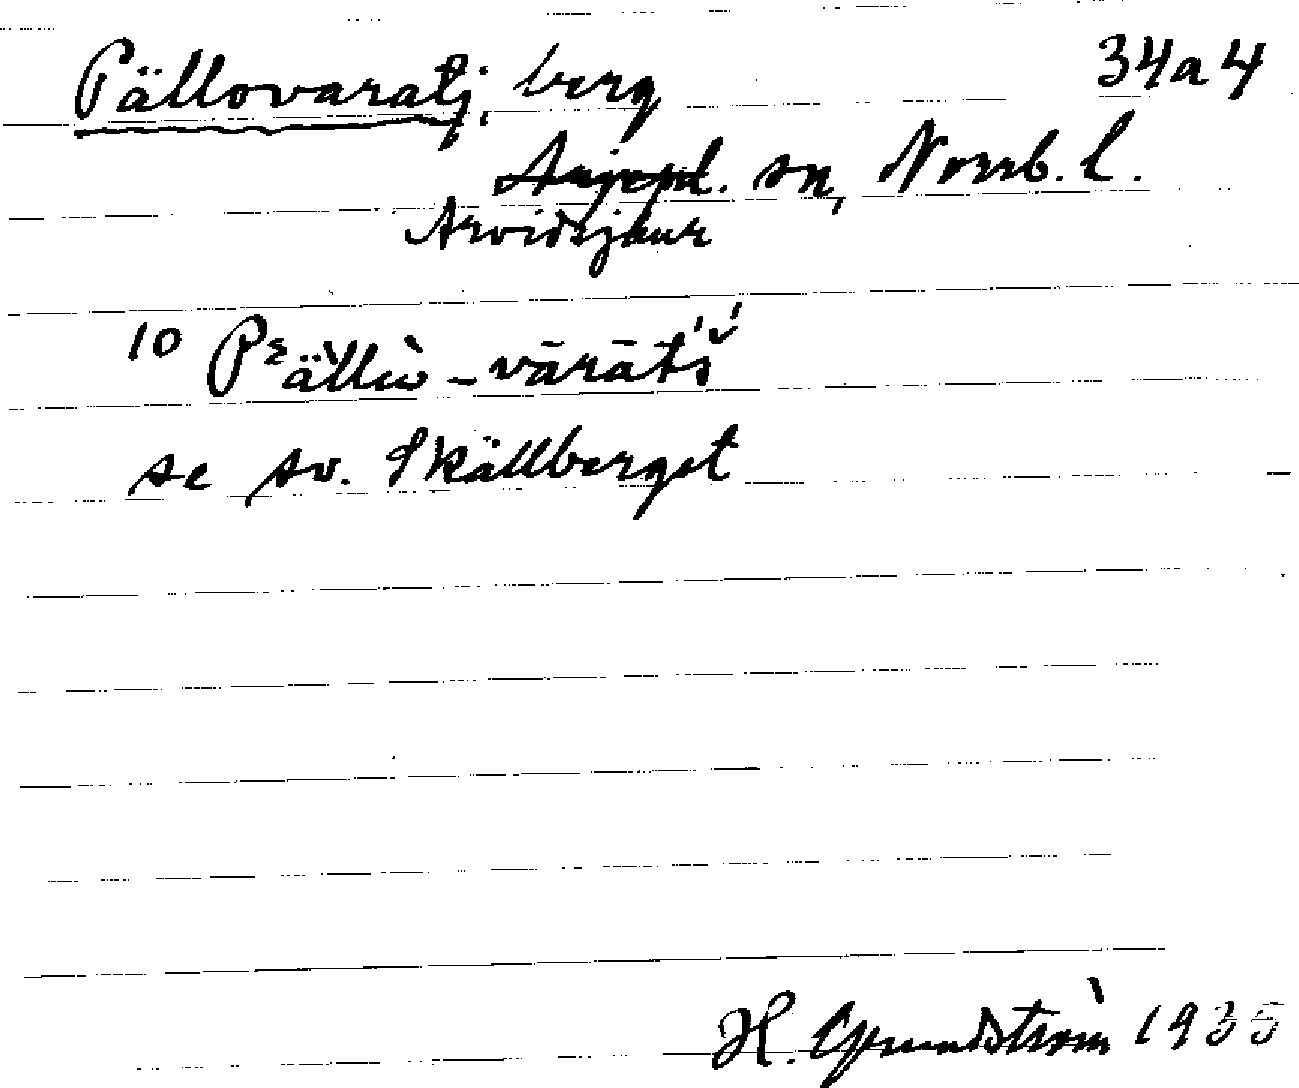 Pällovaratj, berg 34a4
Arjepl. sn, Norrb. l.
Arvidsjaur
10 Pällu - vārātś
se sv. Skällberget
H. Grundström 1935